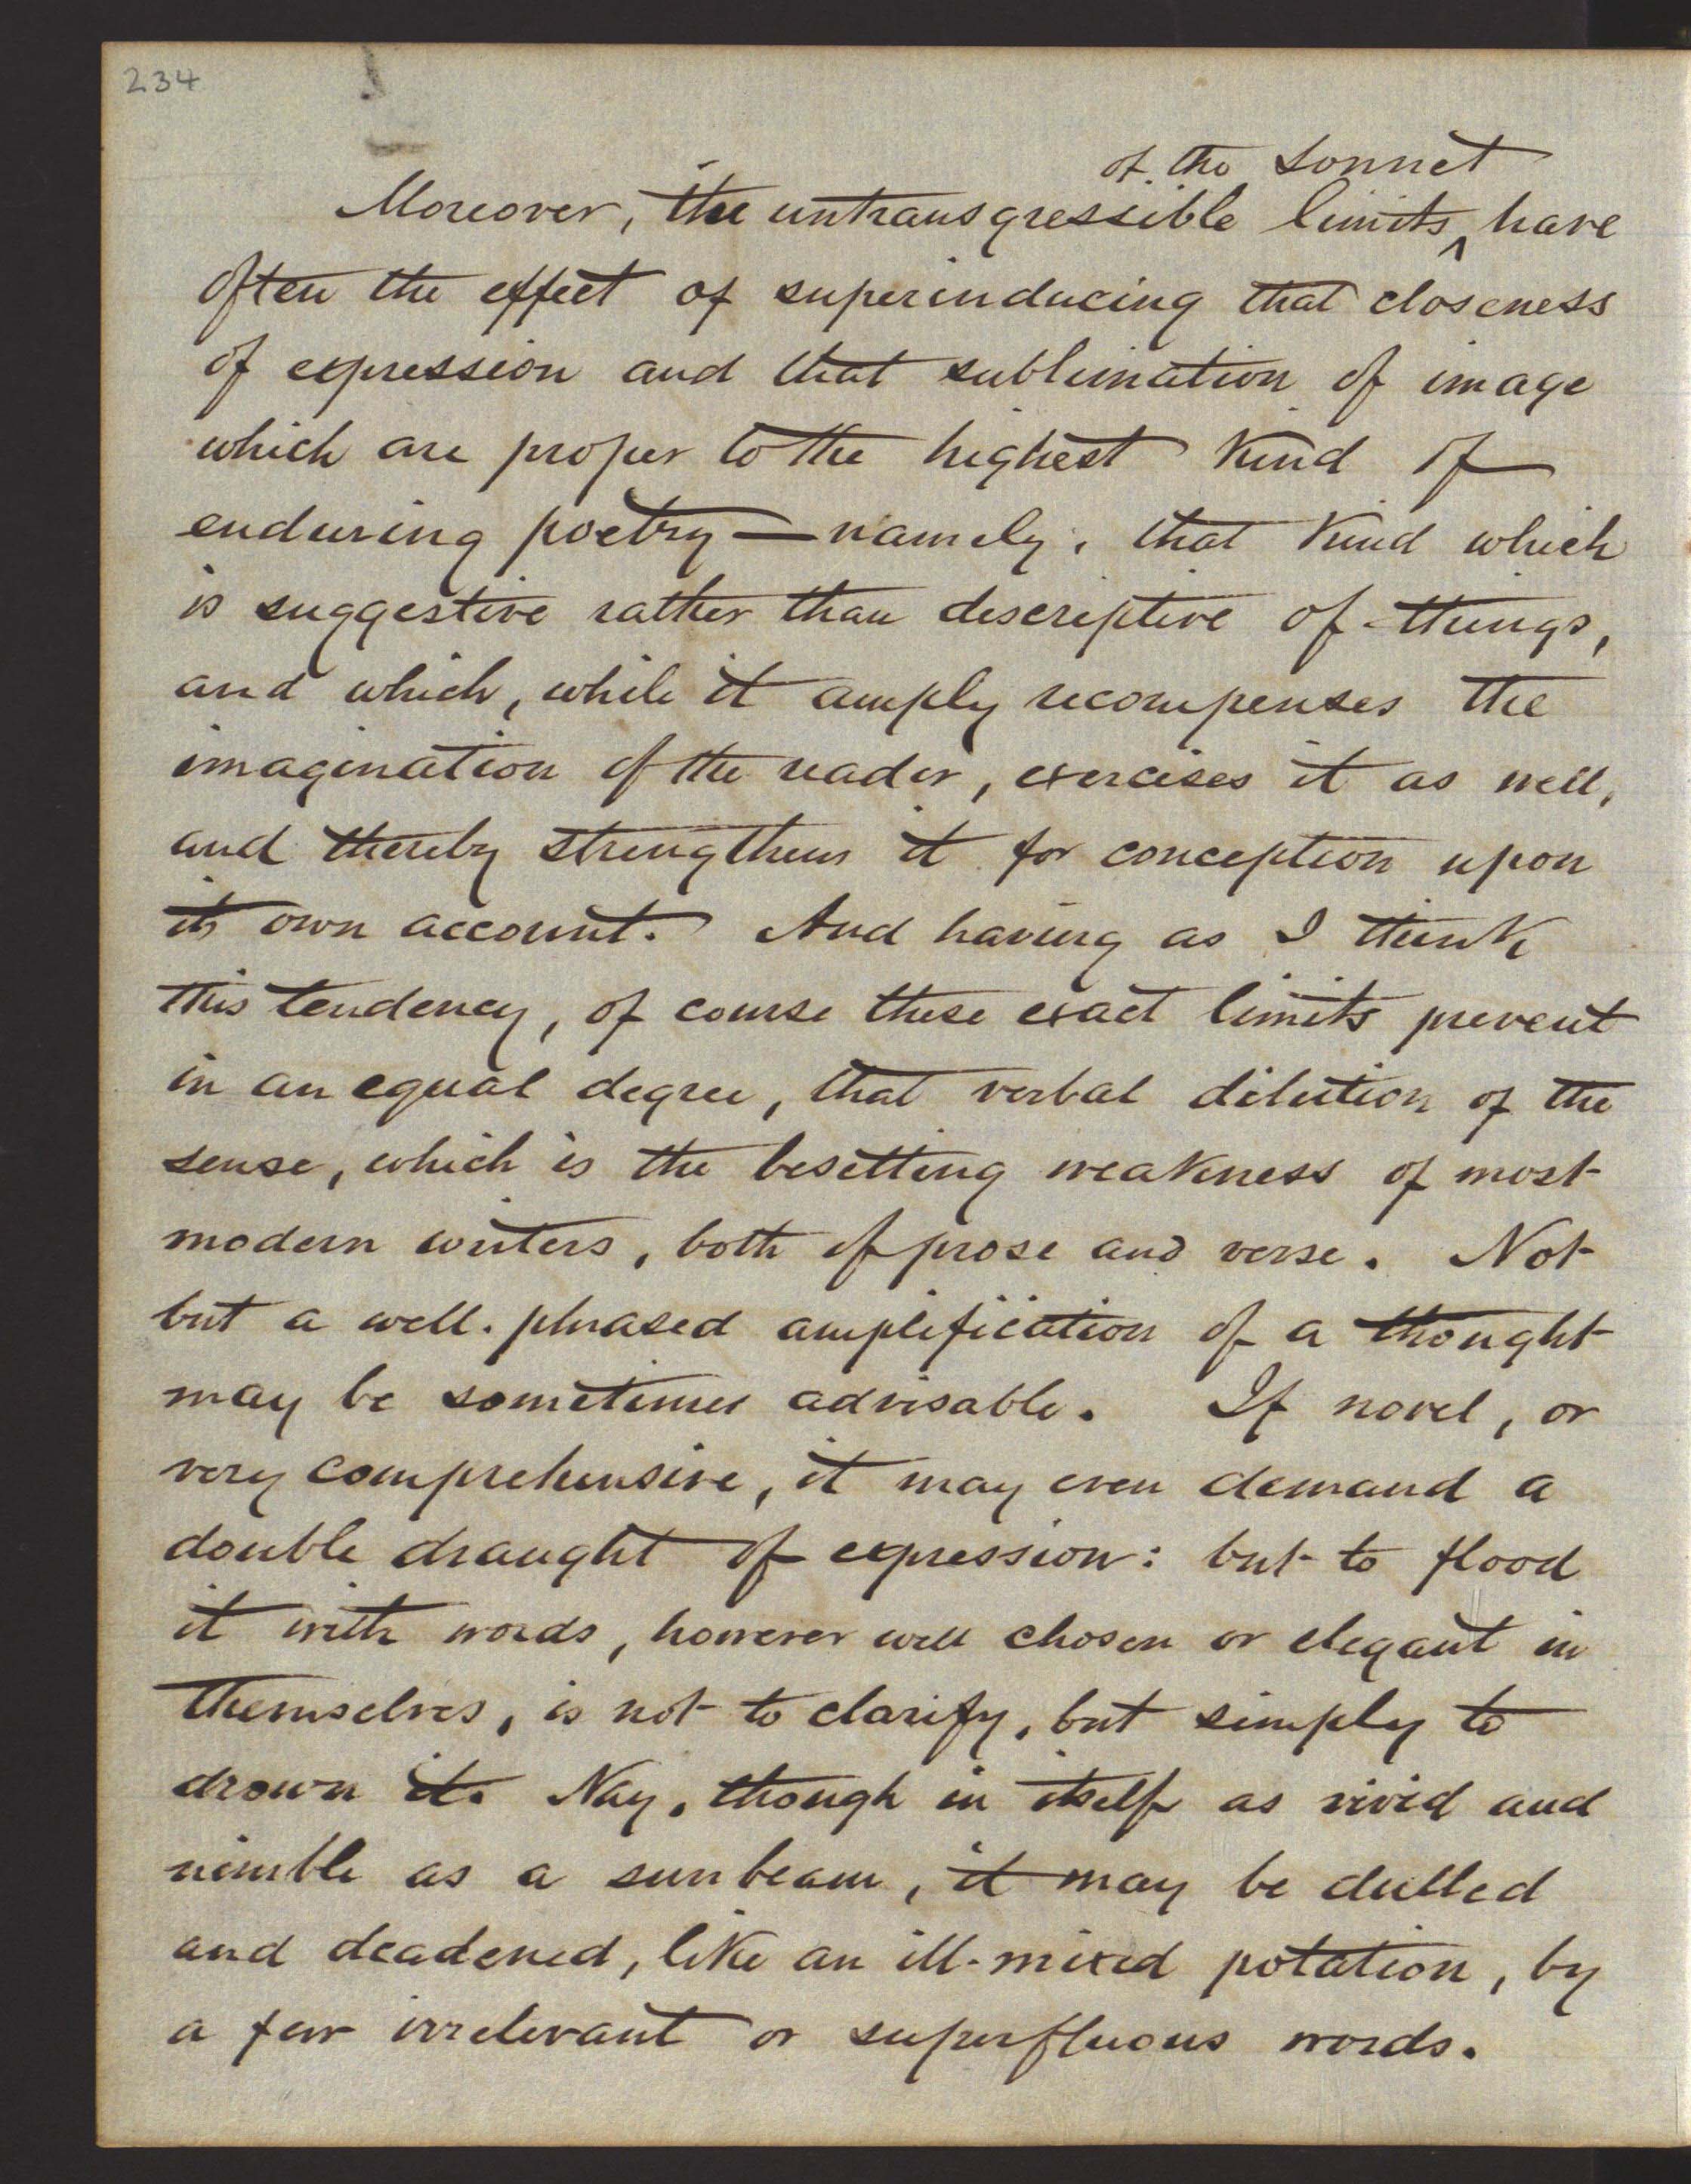 234
of the sonnet
Moreover, the untransgressible limits ^ have
often the effect of superinducing that closeness
of expression and that sublimation of image
which are proper to the highest kind of
enduring poetry — namely, that kind which
is suggestive rather than descriptive of things,
and which, while it amply recompenses the
imagination of the reader, exercises it as well,
and thereby strengthens it for conception upon
its own account. And having as I think
this tendency, of course these exact limits prevent
in an equal degree, that verbal dilution of the
sense, which is the besetting weakness of most
modern writers, both of prose and verse. Not
but a well-phrased amplification of a thought
may be sometimes advisable. If novel, or
very comprehensive, it may even demand a
double draught of expression: but to flood
it with words, however well chosen or elegant in
themselves, is not to clarify, but simply to
drown it. Nay, though in itself as vivid and
nimble as a sunbeam, it may be dulled
and deadened, like an ill-mixed potation, by
a few irrelevant or superfluous words.